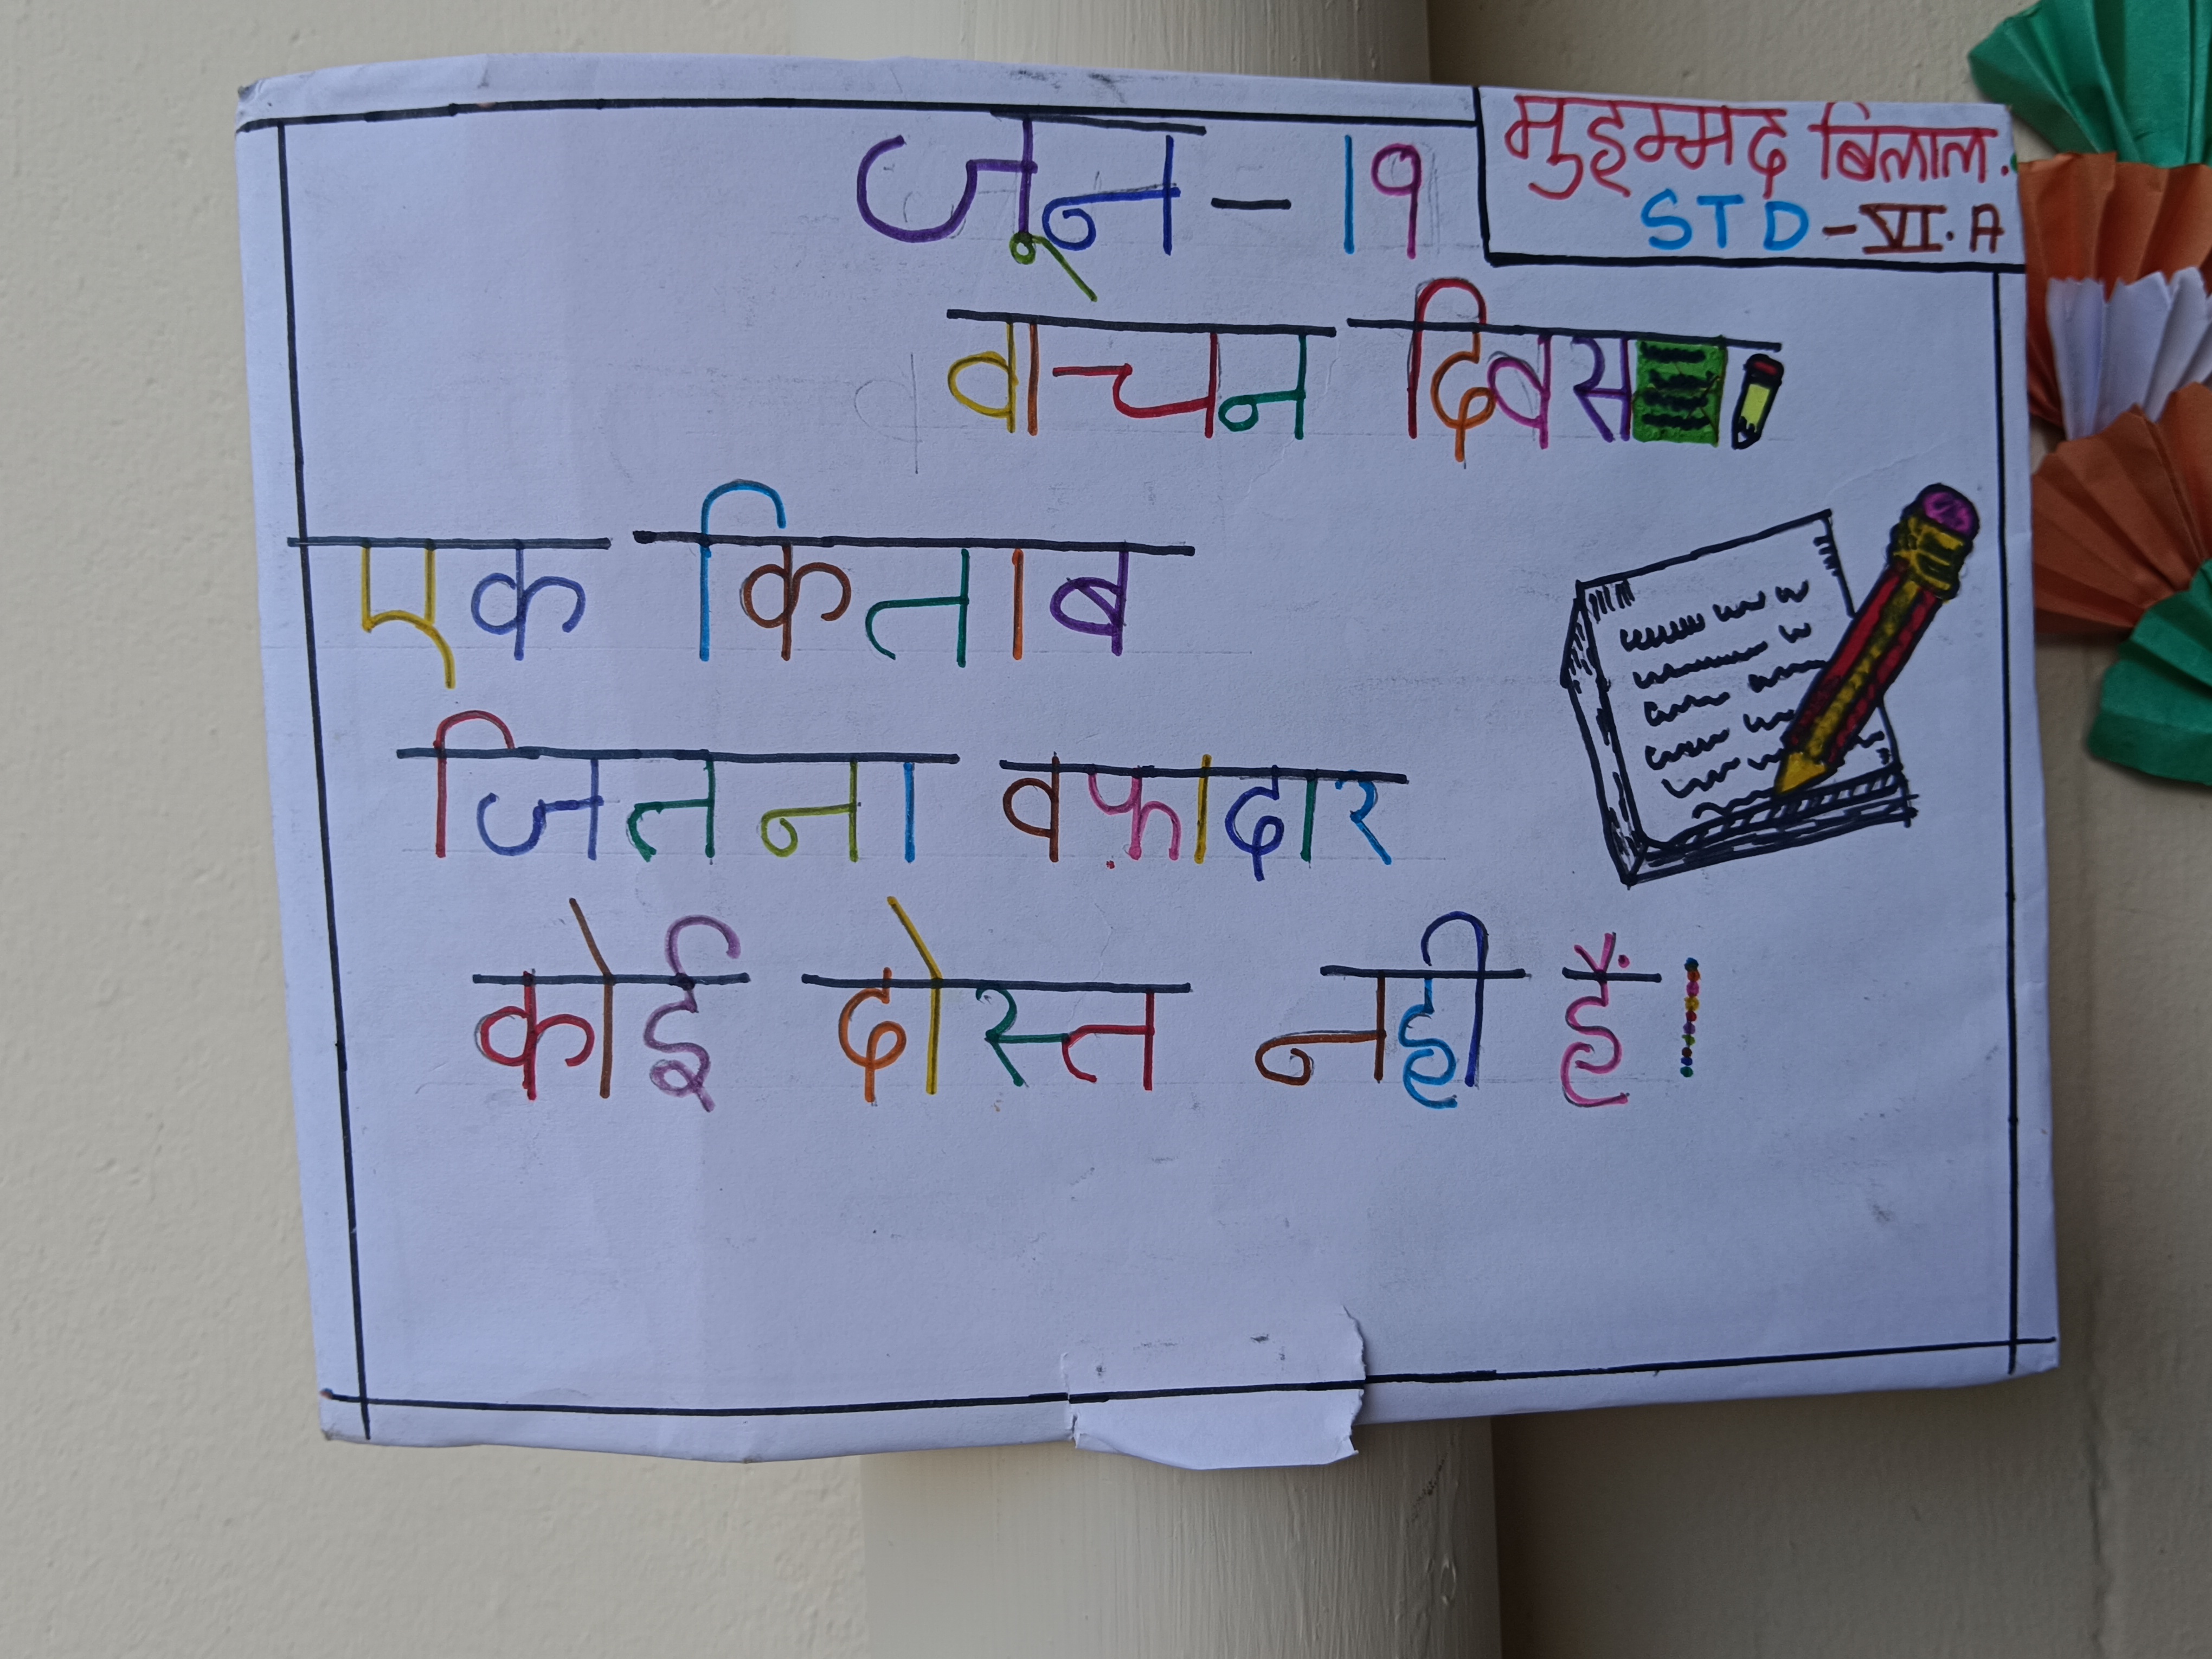 जून - 19
मुहम्मद बिलाल.
STD - VI. A
वाचन दिवस
एक किताब
जितना वफ़ादार
कोई दोस्त नही हैं।